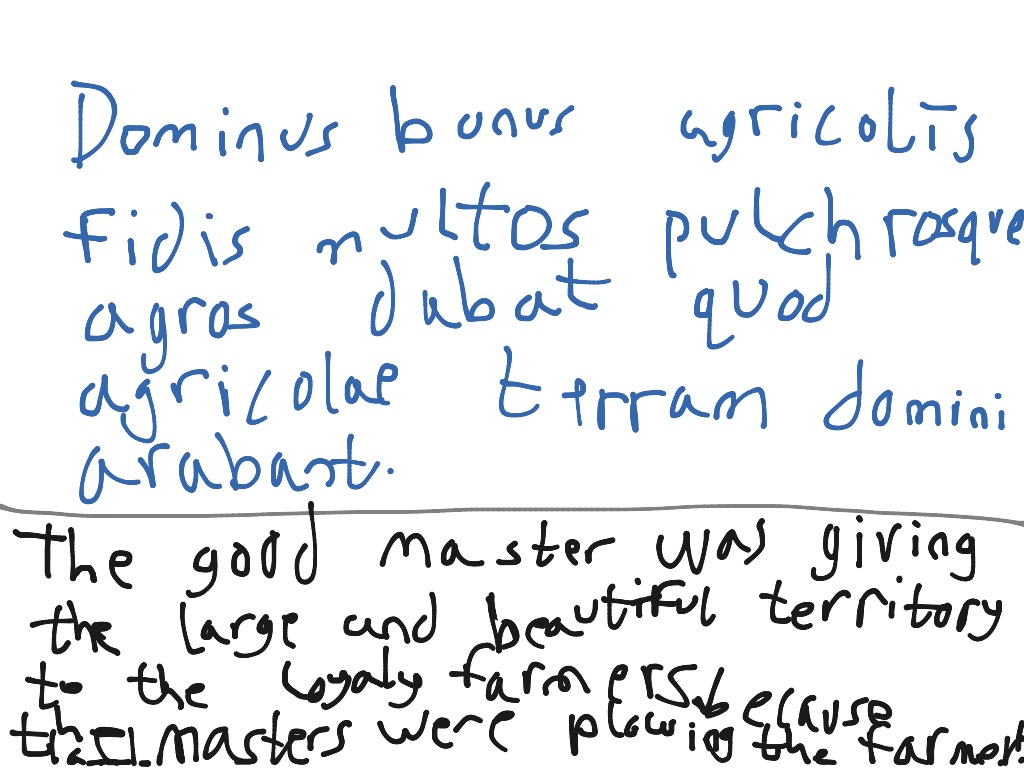 Dominus bonus agricolīs
fidis multos pulchrosque
agros dabat quod
agricolae terram domini
arabant.
The good master was giving
the large and beautiful territory
to the loyaly farmers because
masters were plowing the farmer